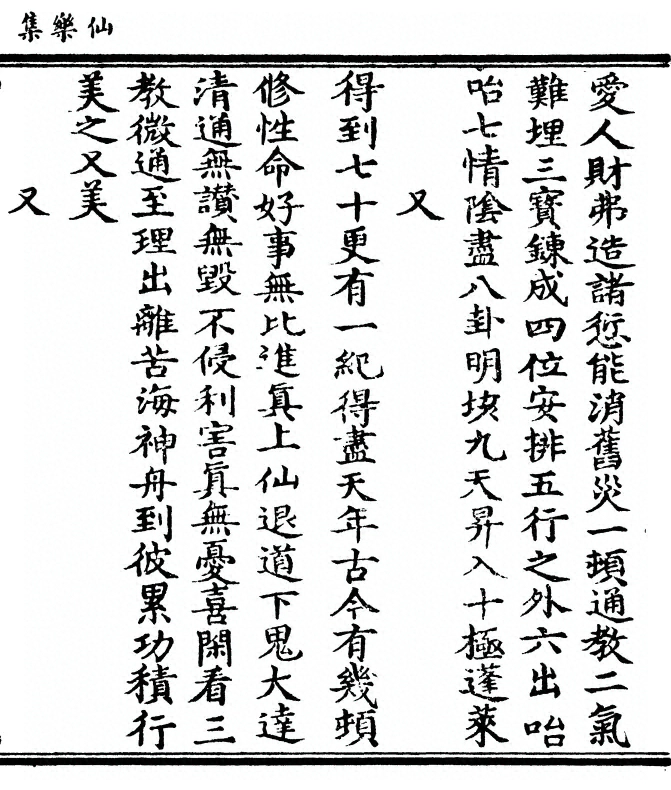 仙樂集
愛人財弗造諸愆能消舊災一頓通教二氣
難埋三寶鍊成四位安排五行之外六出咍
咍七情陰盡八卦明垓九天昇入十極蓬萊
又
得到七十更有一紀得盡天年古今有幾頓
修性命好事無比進眞上仙退道下鬼大達
清通無讃無毀不侵利害眞無憂喜閑看三
教微通至理出離苦海神舟到彼累功積行
美之又美
又